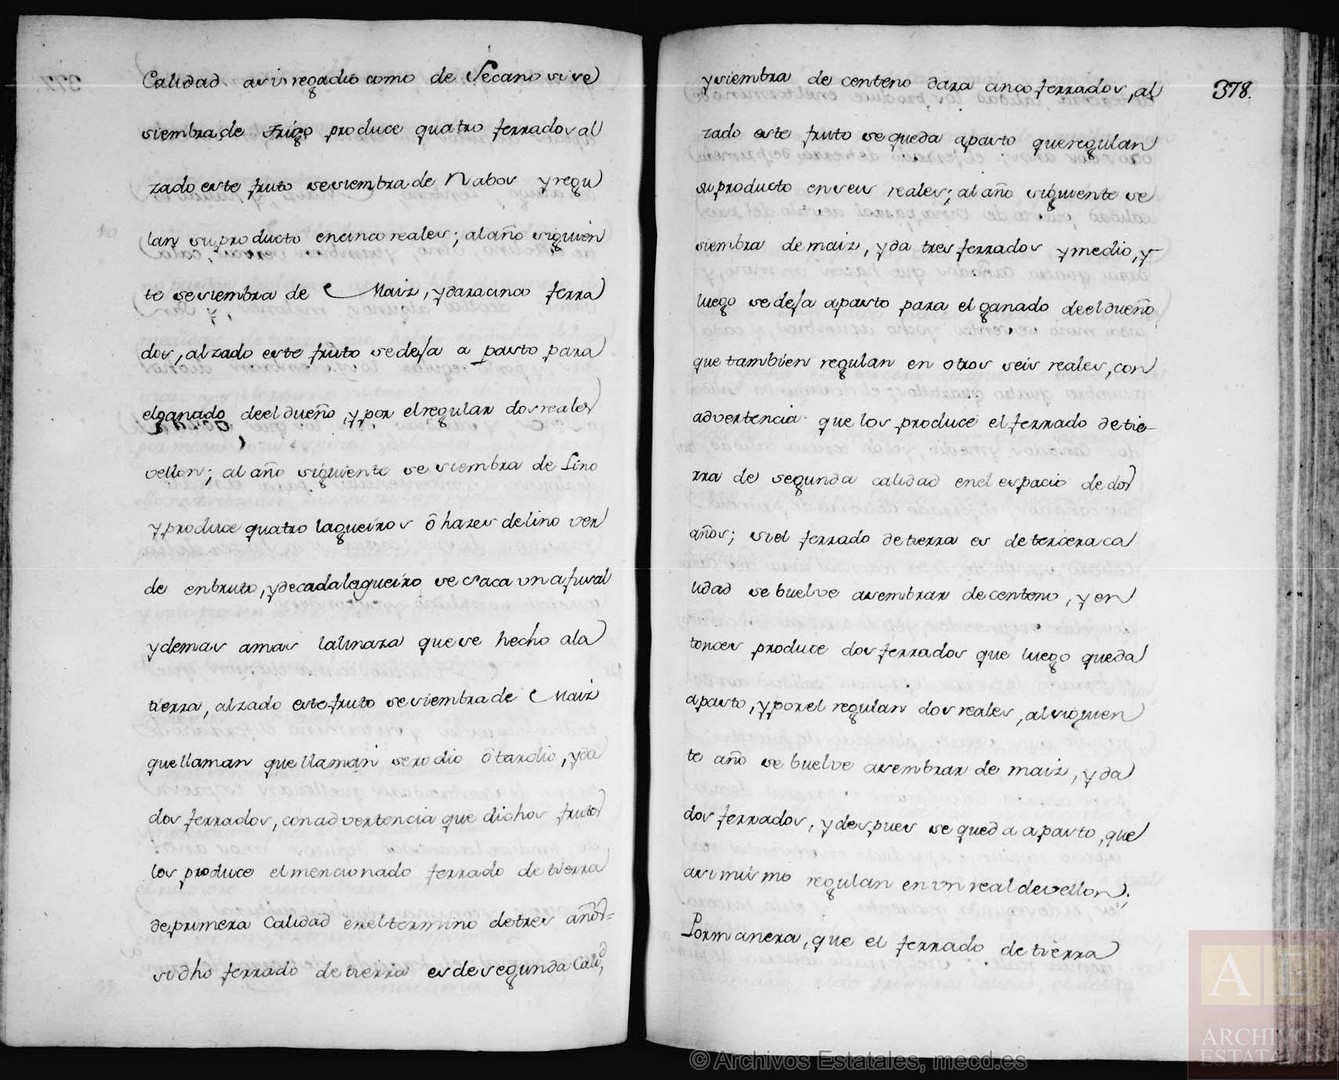 Calidad asi regadio como de Secano si se
siembra de trigo produce quatro ferrados al
zado este fruto se siembra de Nabos y regu
lan su producto en cinco reales; al año siguien
te se siembra de Maiz, y dara cinco ferra
dos, alzado este fruto se desa a pasto para
el ganado de el dueño y por el regular dos reales
vellon; al año siguiente se siembra de Lino
y produce quatro lagueiros ô hazes de lino ver
de en bruto, y de cada lagueiro se saca una fusal
y demas a mas la linaza que se hecho a la
tierra, alzado este fruto se siembra de Maiz
que llaman que llaman serodio ô tardio, y da
dos ferrados, con advertencia que dichos frutos
los produce el mencionado ferrado de tierra
de primera Calidad en el termino de tres años=
si dho ferrado de tierra es de segunda Calid,
378.
y siembra de centeno dara cinco ferrados, al
zado este fruto se queda a pasto que regulan
su producto en seis reales; al año siguiente se
siembra de maiz, y da tres ferrados y medio, y
luego se desa a pasto para el ganado de el dueño
que tambien regulan en otros seis reales, con
advertencia que los produce el ferrado de tie-
rra de segunda calidad en el espacio de dos
años; si el ferrado de tierra es de tercera ca
lidad se buelve a sembrar de centeno, y en
tonces produce dos ferrados que luego queda
a pasto, y por el regulan dos reales, al siguien
te año se buelve a sembrar de maiz, y da
dos ferrados, y despues se queda a pasto, que
asi mismo regulan en un real de vellon.
Por manera, que el ferrado de tierra
© Archivos Estatales, mecd.es
A E
ARCHIVOS
ESTATALES